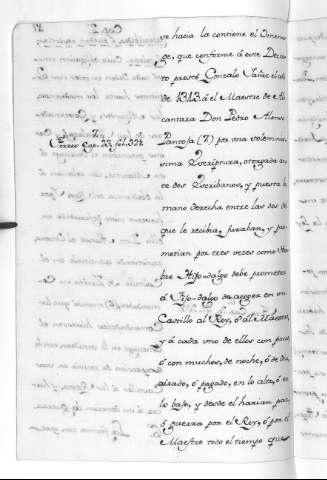 se hacia la contiene el Omena
ge, que conforme á este Decre
to prestó Gonzalo Yañez el año
de 1343 á el Maestre de Al
cantara Don Pedro Alonso
Pantoja (7) por una solemni
sima Escriptura, otorgada an
te dos Escribanos, y puesta la
mano derecha entre las dos de
que le recibia, juraban, y pro
metian por tres veces como
bre Hijo-dalgo debe prometer
á Hijo-dalgo de acoger en su
Castillo al Rey, ó al Maestre,
y á cada uno de ellos con pocos
ó con muchos, de noche, ó de dia,
airado, ó pagado, en lo alto, ó en
lo bajo, y desde el harian paz
ó guerra por el Rey, ó por el
Maestre todo el tiempo que
7
Cap. 23, fol. 324